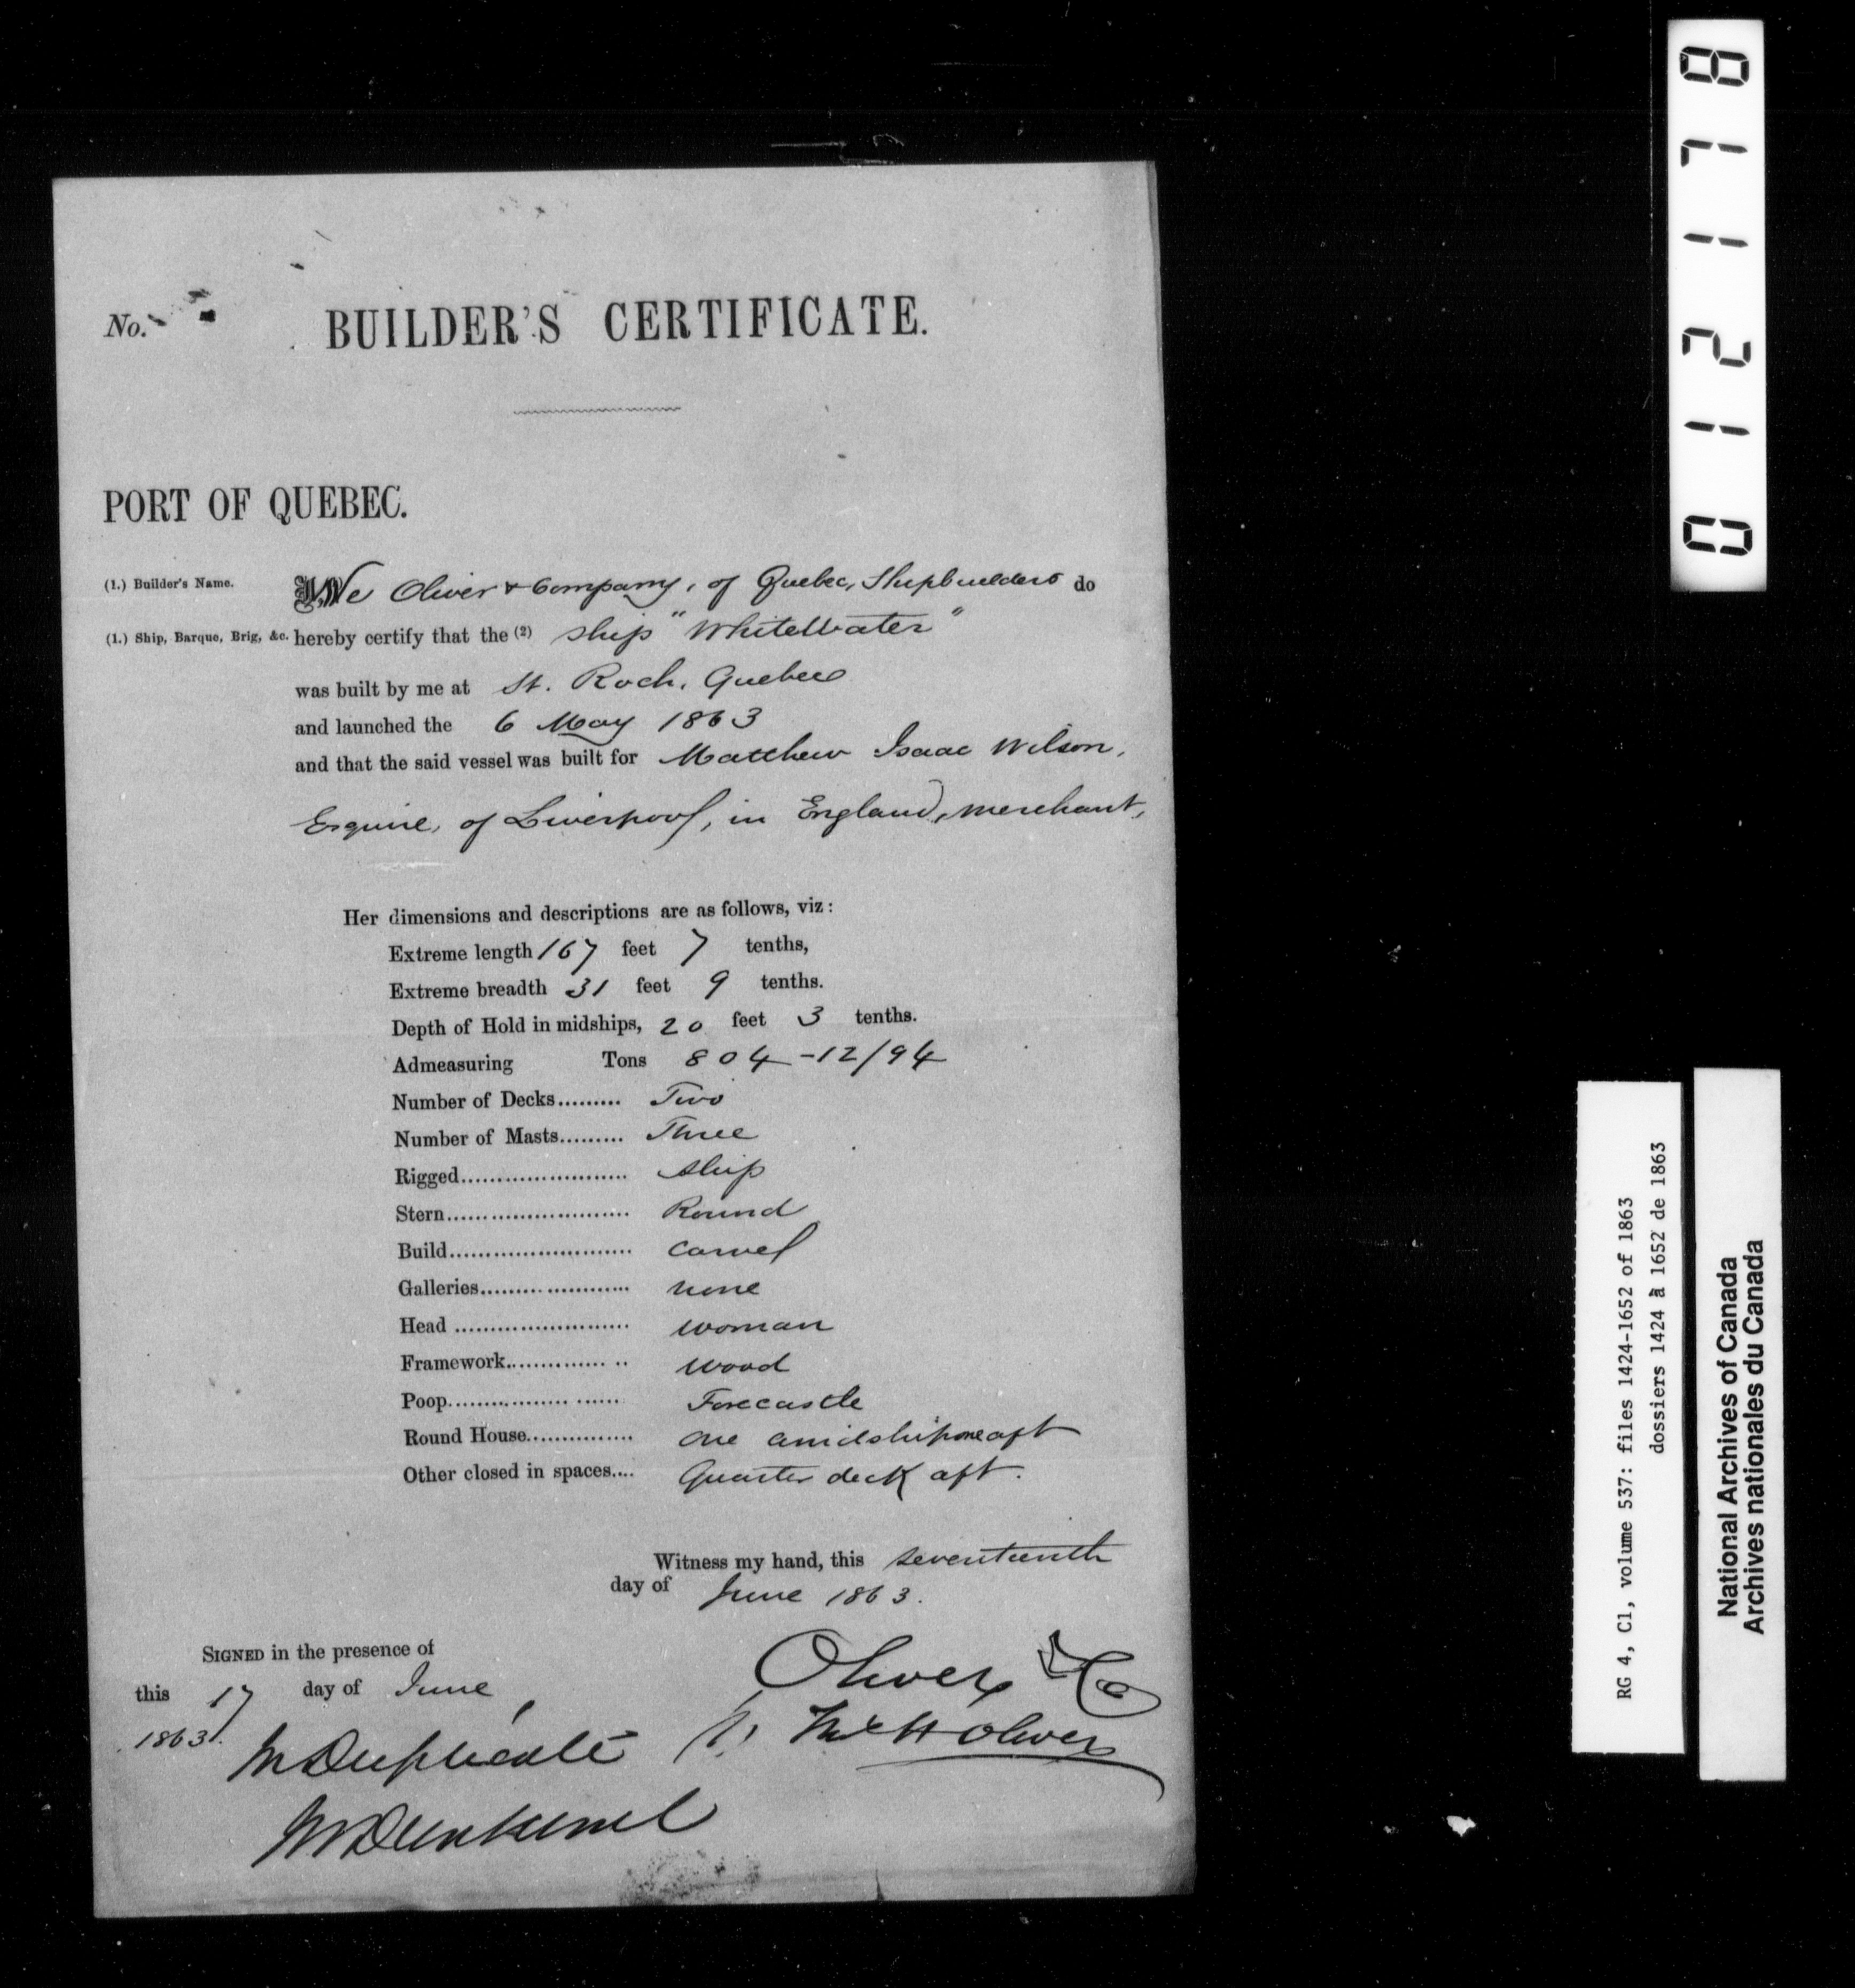 No.
BUILDER'S CERTIFICATE.
PORT OF QUEBEC.
(1.) Builder's Name. We Oliver & Company, of Quebec, Shipbuilders do
(1.) Ship, Barque, Brig, &c. hereby certify that the (2) ship "White Water"
was built by me at St. Roch, Quebec
and launched the 6 May 1863
and that the said vessel was built for Matthew Isaac Wilson,
Esquire, of Liverpool, in England, merchant,
Her dimensions and descriptions are as follows, viz:
Extreme length 167 feet 7 tenths,
Extreme breadth 31 feet 9 tenths.
Depth of Hold in midships, 20 feet 3 tenths.
Admeasuring Tons 804-12/94
Number of Decks......... Two
Number of Masts......... Three
Rigged....................... ship
Stern......................... Round
Build......................... carvel
Galleries..................... none
Head ........................ woman
Framework.............. .. wood
Poop................. ...... Forecastle
Round House............... one amidship one aft
Other closed in spaces.... Quarter deck aft.
Witness my hand, this seventeenth
day of June 1863.
SIGNED in the presence of
this 17 day of June
1863.
Oliver & Co
In Duplicate
Oliver
012178
RG 4, C1, volume 537: files 1424-1652 of 1863
dossiers 1424 à 1652 de 1863
National Archives of Canada
Archives nationales du Canada